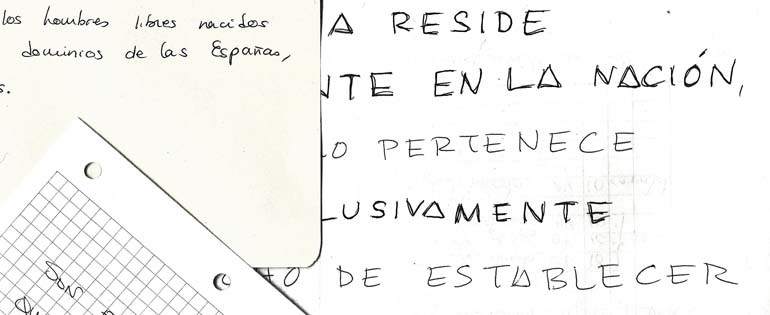 los hombres libres nacidos
dominios de las Españas,
s.
A RESIDE
NTE EN LA NACIÓN,
LO PERTENECE
LUSIVAMENTE
TO DE ESTABLECER
SON